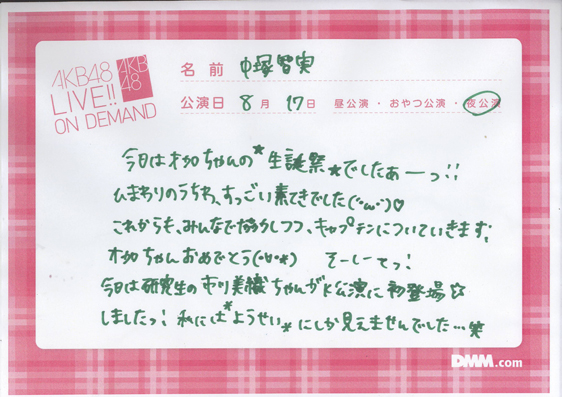 AKB48
LIVE!!
ON DEMAND
AKB
48
名前 中塚智実
公演日 8月17日 昼公演・おやつ公演・夜公演
今日はオカちゃんの*生誕祭*でしたぁーっ!!
ひまわりのうちわ、すっごい素てきでした(´・ω・`)♡
これからも、みんなで協力しつつ、キャプテンについていきます;
オカちゃんおめでとう(・∀・*) そーしーてっ!
今日は研究生の市川美織ちゃんがK公演に初登場☆
しましたっ! 私には*ようせい*にしか見えませんでした…笑
DMM.com